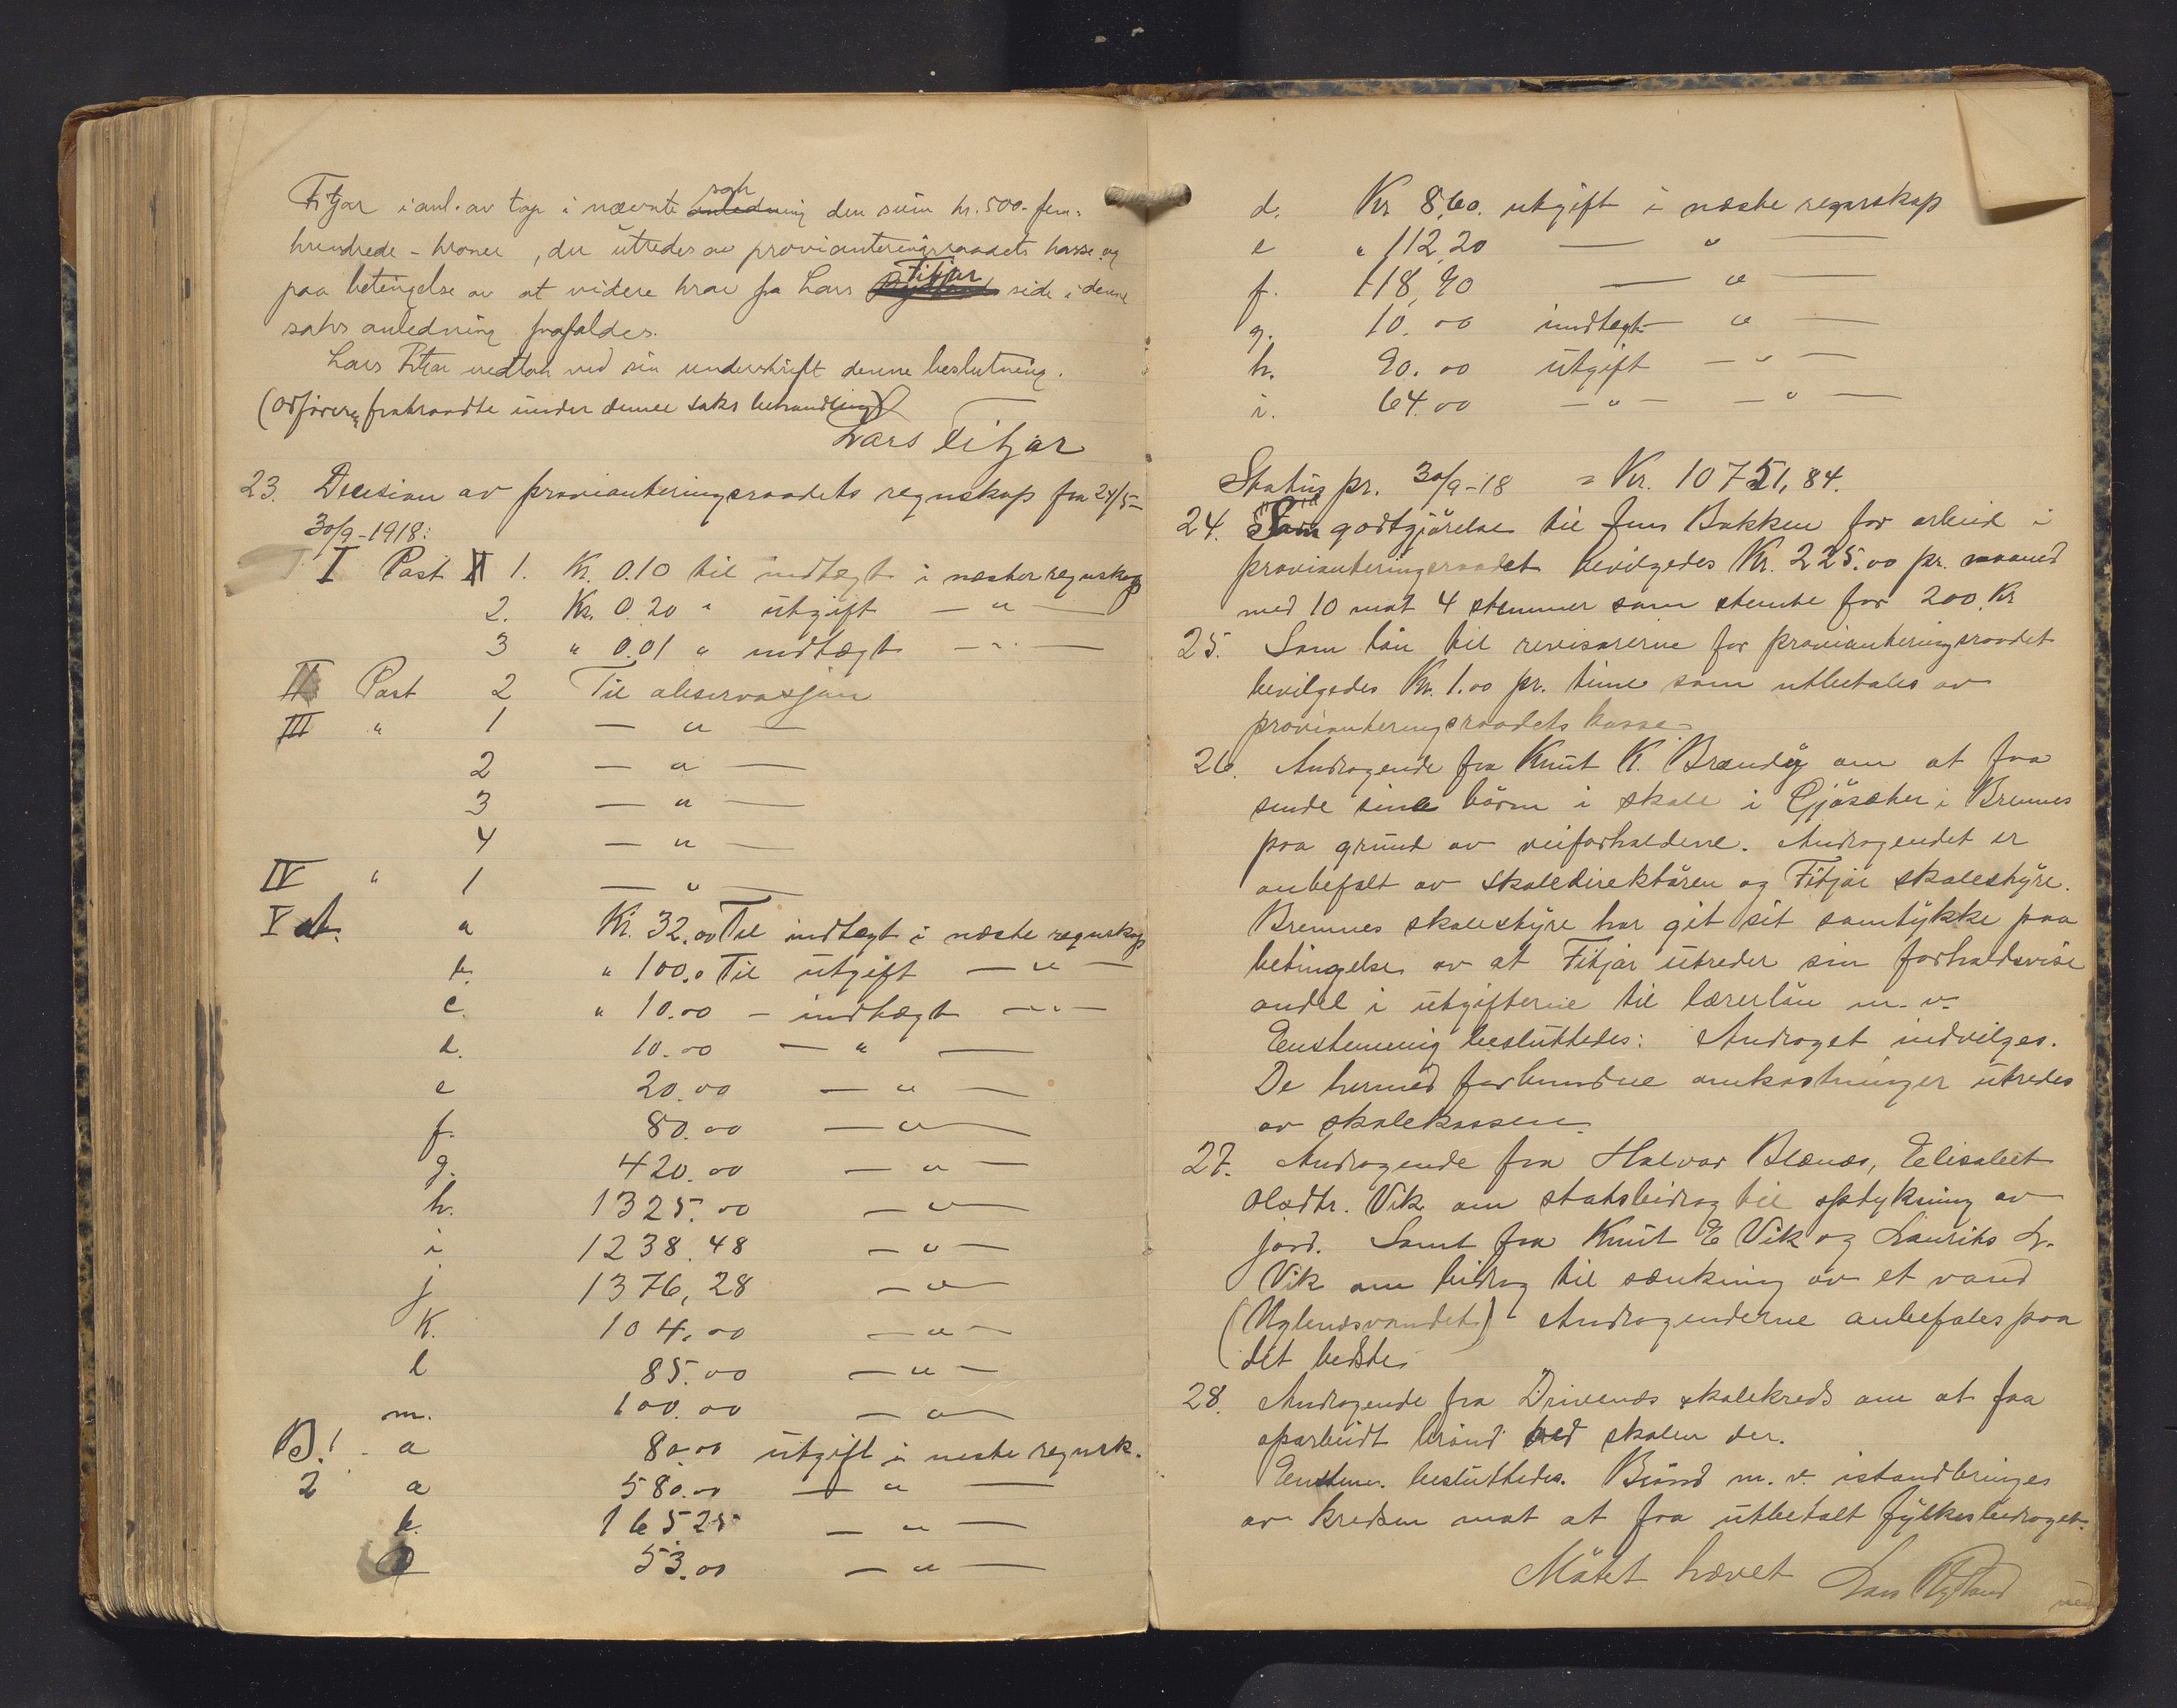 Fitjar i anl. av tap i nævnte sak den sum kr. 500. fem-
hundrede - kroner, der utredes av provianteringsraadets kasse og
paa betingelse av at videre krav fra Lars Fitjar side i denne
saks anledning frafaldes.
Lars Fitjar vedtok ved sin underskrift denne beslutning.
(Ordförer fratraadte under denne saks behandling)
Lars Fitjar
23. Decision av provianteringsraadets regnskap fra 24/5-
30/9-1918:
I Post 1. Kr. 0.10 til indtægt i næste regnskap
2. Kr. 0.20 " utgift — " —
3 " 0.01 " indtægt — " —
II Post 2 Til observasjon
III " 1 — " —
2 — " —
3 — " —
4 — " —
IV " 1 — " —
V a Kr. 32.00 Til indtægt i næste regnskap
b. " 100.0 Til utgift — " —
c. " 10.00 - indtægt — " —
d. 10.00 — " —
e 20.00 — " —
f. 80.00 — " —
g. 420.00 — " —
h. 1325.00 — " —
i 1238.48 — " —
j 1376,28 — " —
k. 104.00 — " —
l 85.00 — " —
m. 100.00 — " —
B.1. a 80.00 utgift i neste regnsk.
2 a 580.00 — " —
b. 165 25 — " —
53.00 — " —
d. Kr 8,60. utgift i næste regnskap
e " 112,20 — " —
f. 118,90 — " —
g. 10.00 indtægt " —
h. 90.00 utgift — " —
i. 64.00 — " — — " —
Status pr. 30/9-18 = Kr. 10751,84.
24. Som godtgjörelse til Jens Bakken for arbeid i
provianteringsraadet bevilgedes Kr. 225.00 pr. maaned
med 10 mot 4 stemmer som stemte for 200 Kr
25. Som lön til revisorerne for provianteringsraadet
bevilgedes Kr. 1.00 pr. time som utbetales av
provianteringsraadets kasse.
26. Andragende fra Knut K. Brandöy om at faa
sende sine börn i skole i Gjösæter i Bremnes
paa grund av veiforholdene. Andragendet er
anbefalt av skoledirektören og Fitjar skolestyre.
Bremnes skolestyre har git sit samtykke paa
betingelse av at Fitjar utreder sin forholdsvise
andel i utgifterne til lærerlön m.v.
Enstemmig besluttedes: Androget indvilges.
De hermed forbundne omkostninger utredes
av skolekassen.
27. Andragende fra Halvor Blænes, Elisabet
Olsdtr. Vik om statsbidrag til opdyrkning av
jord. Samt fra Knut E Vik og Laurits L.
Vik om bidrag til sænkning av et vand
Andragenderne anbefales paa
det bedste.
28. Andragende fra Drivenes skolekreds om at faa
oparbeidt brönd ved skolen der.
Enstem. besluttedes. Brönd m.v. istandbringes
av kredsen mot at faa utbetalt fylkesbidraget.
Mötet hævet Lars Rydland